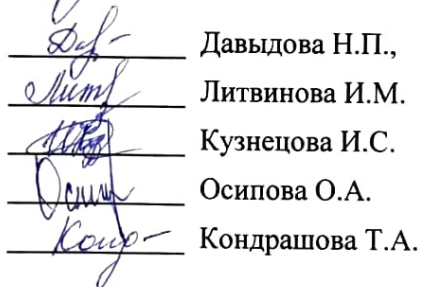 Давыдова Н.П.,
Литвинова И.М.
Кузнецова И.С.
Осипова О.А.
Кондрашова Т.А.